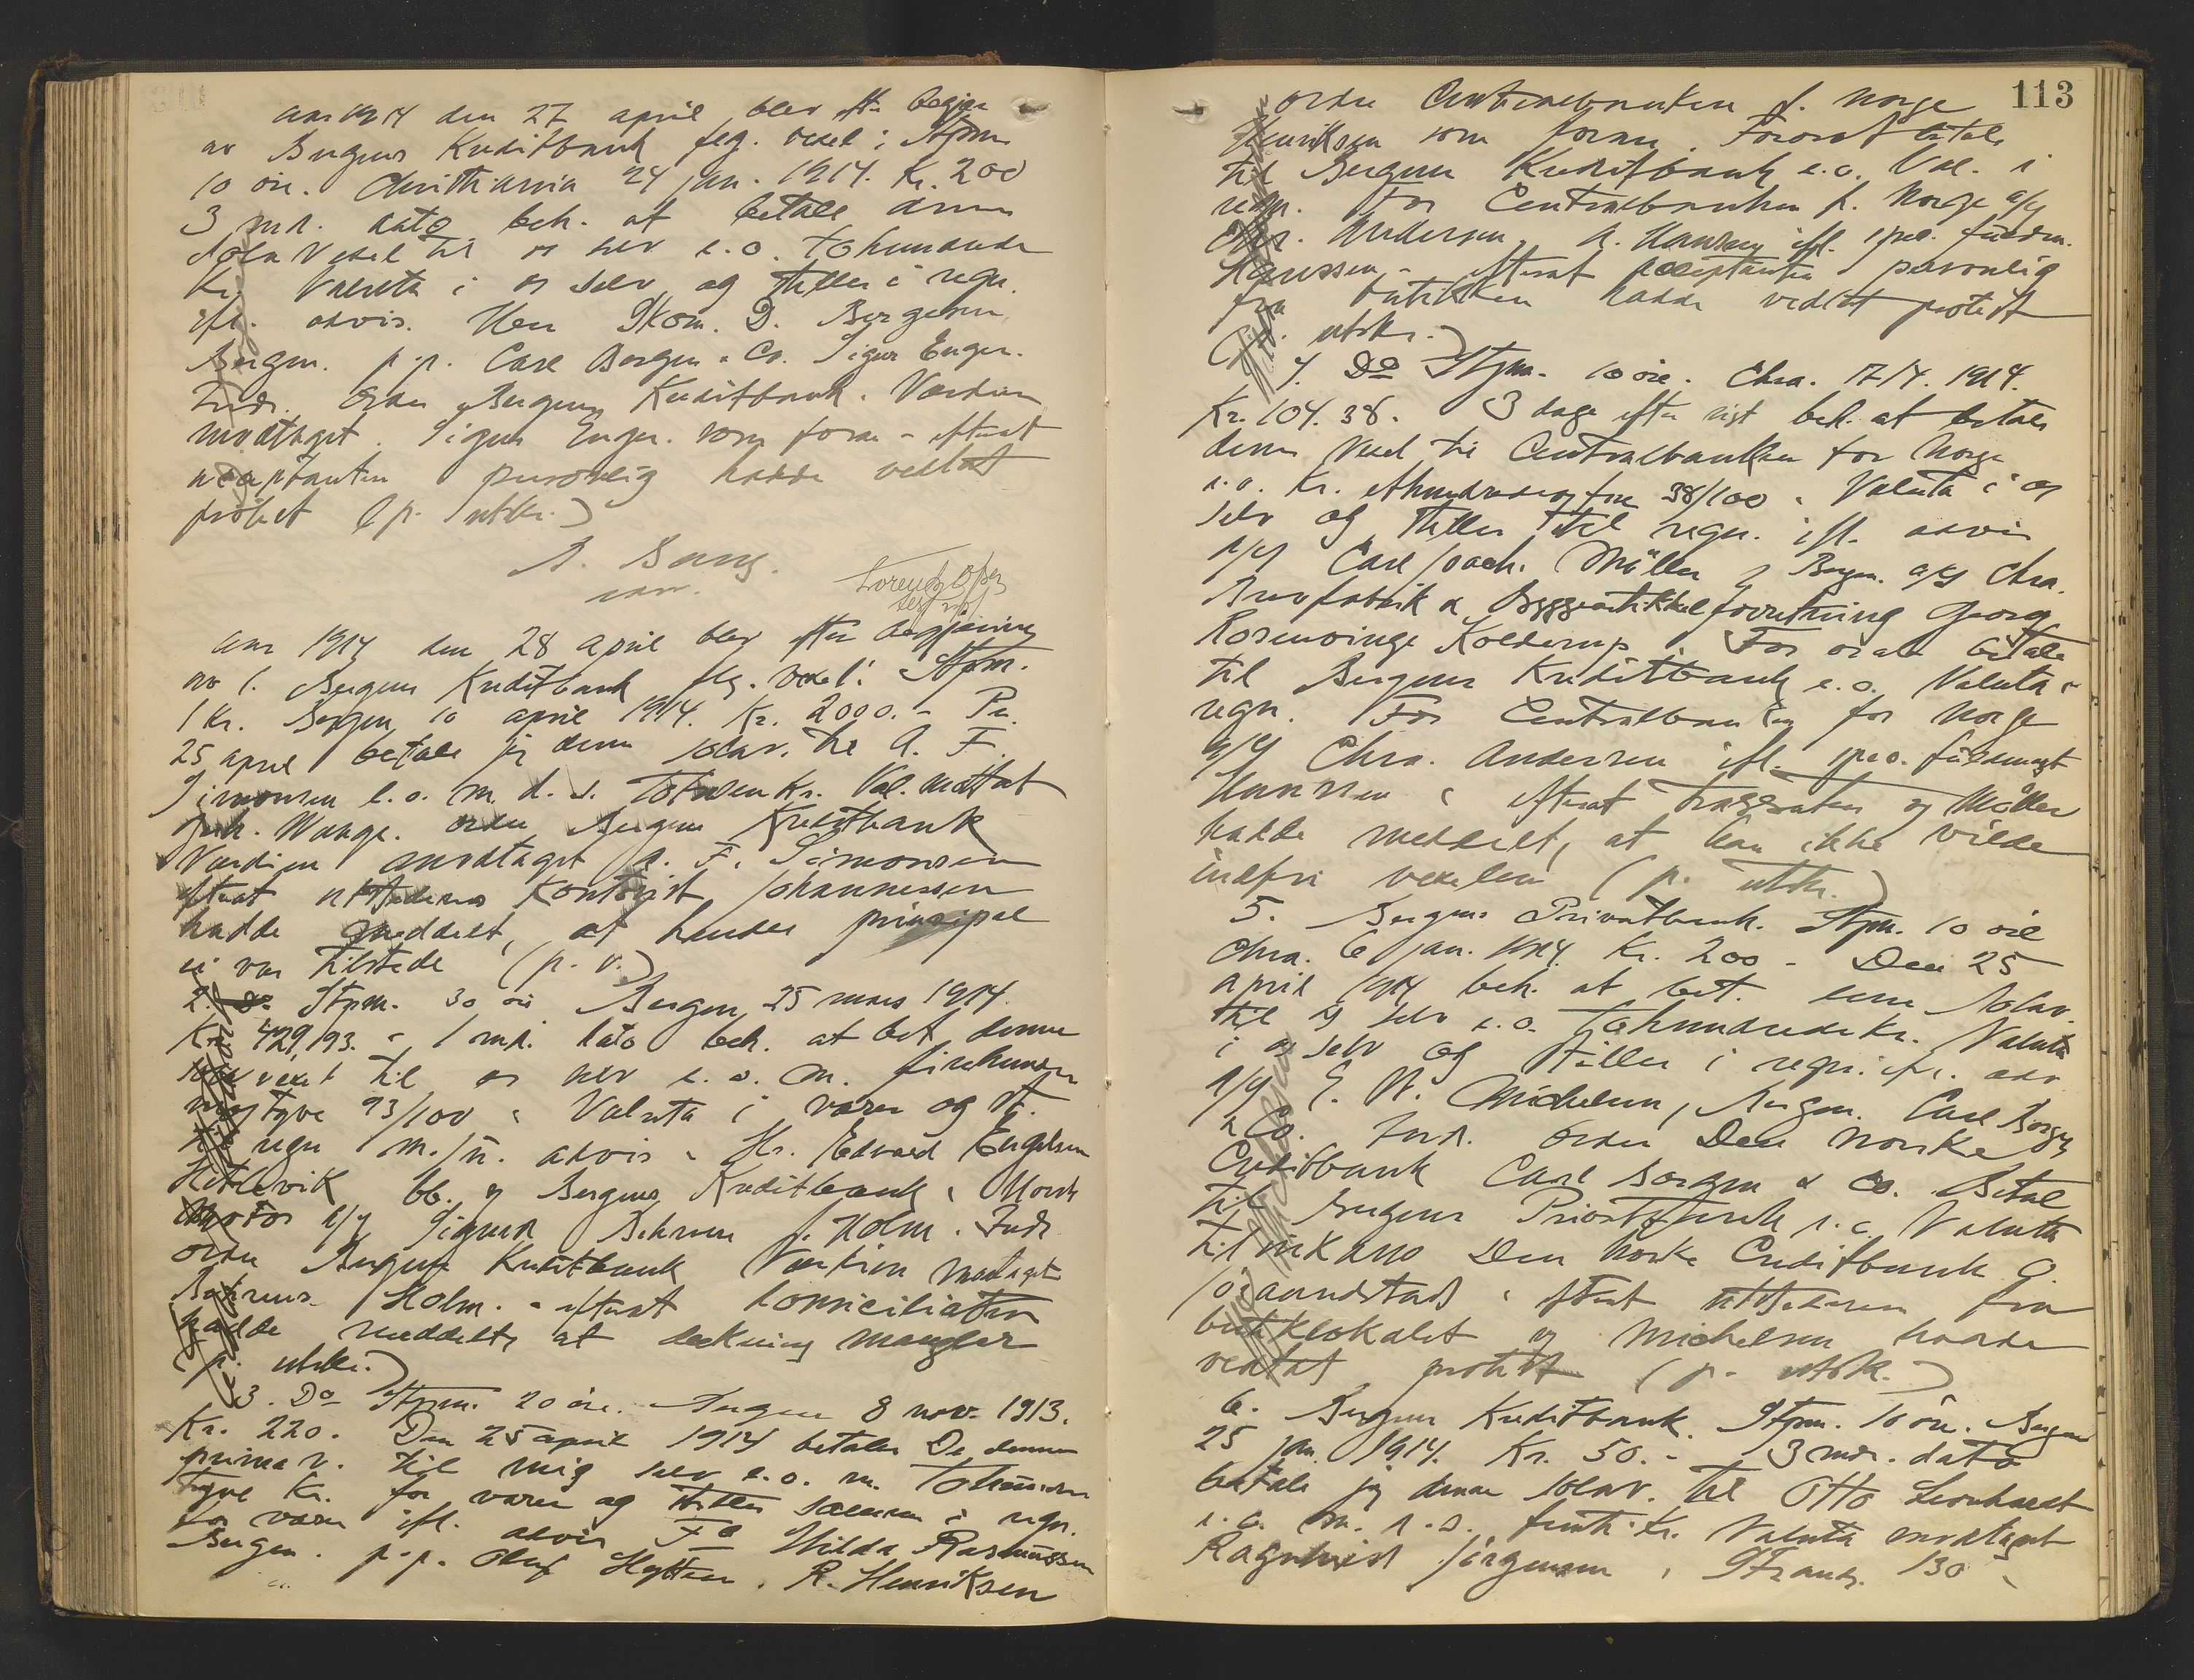 Aar 1914 den 27 april blev efter begjær
av Bergens Kreditbank flg. vexel: Stpm.
10 øre. Christiania 24 jan. 1914. Kr. 200
3 md. dato beh. at betale denne
Sola Vexel til os selv e.o. tohundrede
Kr. Valuta i os selv og stilles i regn.
ifl. advis. Herr Skom. D. Bergesen,
Bergen. p.p. Carl Borgen & Co. Sigur Enger.
Inds. Ordre Bergens Kreditbank. Værdien
modtaget. Sigur Enger. som foran - efterat
acceptanten personlig hadde vedtat
protest (p. utskr.)
Lorentz
Aar 1914 den 28 april blev efter begjæring
av 1. Bergens Kreditbank flg. vexel: Stpm.
1 Kr. Bergen 10 april 1914. Kr. 2000.- Pr.
25 april betaler jeg denne solav. til A. F.
Simonsen e.o. m. d. s. Totusen Kr. Val. mottat
Joh. Waage. ordre Bergens Kreditbank
Værdien modtaget A. F. Simonsen
efterat utstederens kontorist Johannessen
hadde meddelt, at hendes principal
ei var tilstede (p. v.)
2. Do Stpm. 30 øre Bergen 25 mars 1914.
Kr. 429,93. - 1 md. dato beh. at bet. denne
solavexel til os selv e.o. m. firehundre
nigtyve 93/100 Valuta i varer og st.
til regn m./u. advis - Hr. Edvard Engelsen
Hetlevik bb. og Bergens Kreditbank, Norsk
Motor A/S Sigurd Behrens J. Holm. Inds
ordre Bergens Kreditbank Værdien modtaget
Behrens Holm. - efterat domiciliaten
hadde meddelt, at dækning mangler
(p. utskr.)
3. Do Stpm. 20 øre. Bergen 8 nov. 1913.
Kr. 220. Den 25 april 1914 betaler De denne
prima v. til mig selv e.o. m. Tohundre
tyve Kr. for varer og stilles samme i regn.
for varer ifl. advis Frk Hilda Rasmussen
Bergen. p.p. Oluf Hytten. R. Henriksen
113
ordre Centralbanken f. Norge
Henriksen som foran. Foranst. betale
til Bergens Kreditbank e.o. Val. i
regn. For Centralbanken f. Norge A/S
Chr. Andersen, A. Hansen ifl. spec. fuldm.
Hanssen - efterat acceptanten personlig
fra butikken hadde vedtat protest
(p. utskr.)
4. Do Stpm. 10 øre. Chra. 17/4. 1914.
Kr. 104.38. 3 dage efter sigt beh. at betale
denne vexel til Centralbanken for Norge
e.o. Kr. ethundredeogfire 38/100 - Valuta i os
selv og stilles til regn. ifl. advis
A/S Carl Joach. Müller, Bergen. A/S Chra.
Ruvfabrik & Byggeartikkelforretning Georg
Rosenvinge Kolderup. For os at betale
til Bergens Kreditbank e.o. Valuta i
regn. For Centralbanken for Norge
A/S Chra. Andersen ifl. spec. fuldmagt
Hanssen - efterat trassaten og Müller
hadde meddelt, at han ikke vilde
indfri vexelen (p. utskr.)
5. Bergens Privatbank. Stpm. 10 øre
Chra. 6 jan. 1914. Kr. 200 - Den 25
april 1914 beh. at bet. denne Solav.
til os selv e.o. Tohundrede Kr. Valuta
i os selv og stilles i regn. ifl. adv
A/S E. W. Michelsen, Bergen. Carl Borgen
& Co. Inds. ordre Den norske
Creditbank Carl Borgen & Co. Betal
til Bergens Privatbank e.o. Valuta
til inkasso Den norske Creditbank O.
Jøraandstad - efterat utstederen fra
butiklokalet og Michelsen hadde
vedtat protest (p. utskr.)
6. Bergens Kreditbank. Stpm. 10 øre. Bergen
25 jan. 1914. Kr. 50.- 3 mdr. dato
betaler jeg denne solav. til Otto Leonhardt
e.o. m. e.s. femti Kr. Valuta modtaget
Ragnhild Jørgensen, Strandg. 130